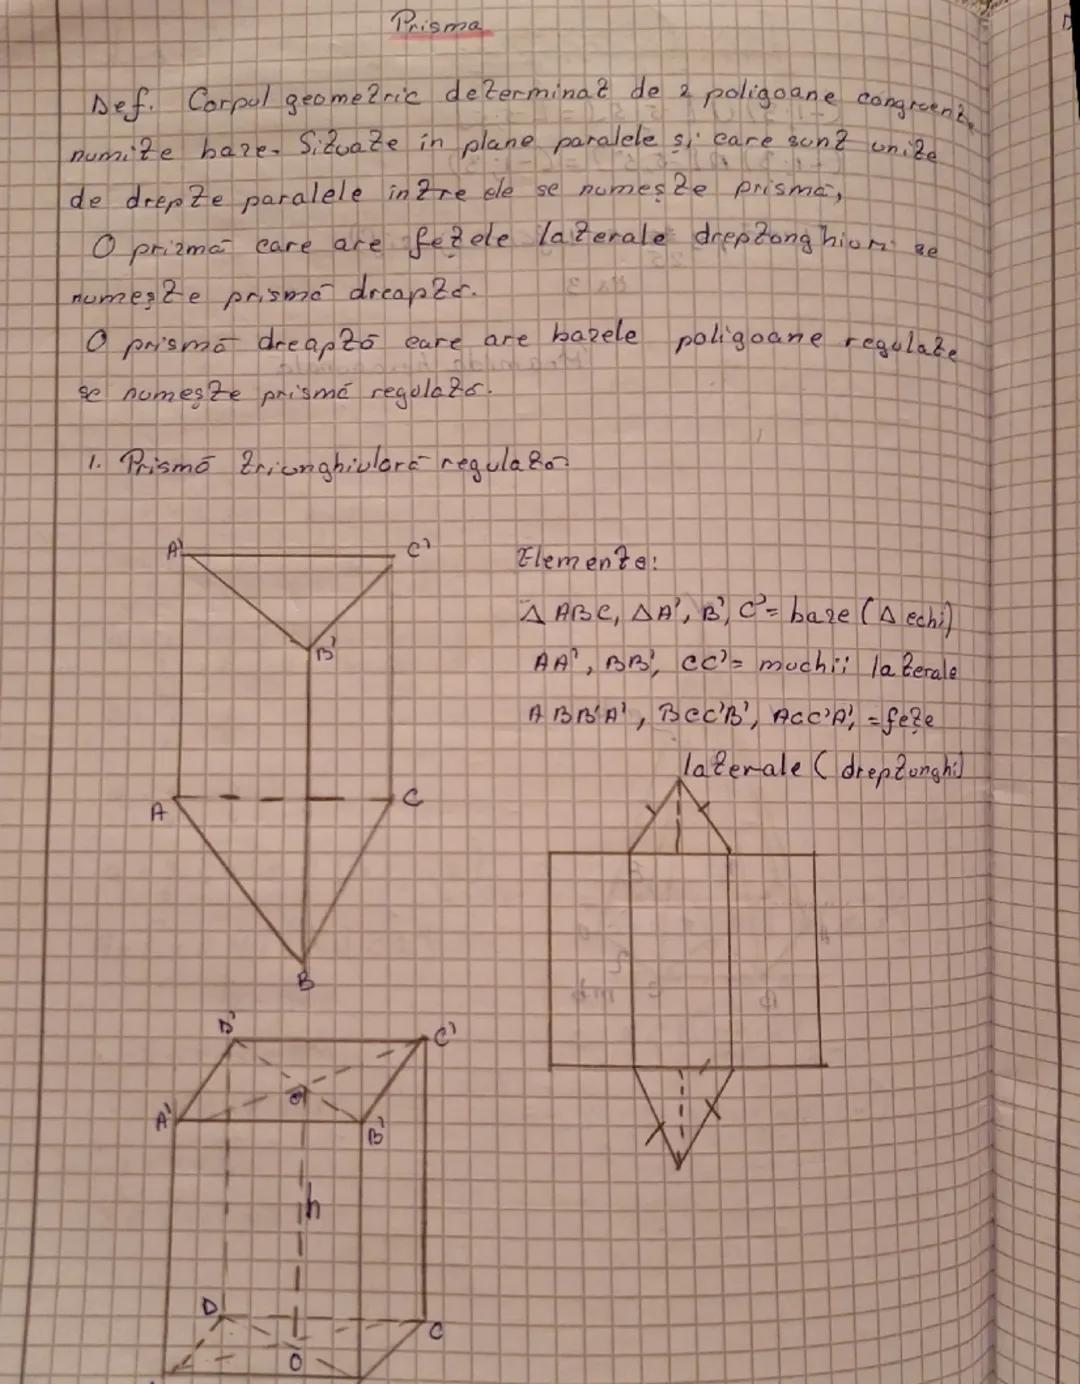 Prisma
Def. Corpul geometric determinat de 2 poligoane congruente
numite baze. Situate in plane paralele și care sunt unite
de drepte paralele intre ele se numește prismă,
O prizmă care are fețele laterale dreptonghiuri se
numește prismă dreaptă.
O prismă dreaptă care are bazele poligoane regulate
se numește prismă regulată.
1. Prismă triunghiulară regulată
A' C'
B'
A C
B
Elemente:
Δ ABC, ΔA', B', C' = baze (Δ echi)
AA', BB', CC' = muchii laterale
ABB'A', BCC'B', ACC'A', = fețe
laterale (dreptunghi)
D' C'
O
A' B'
h
D C
O